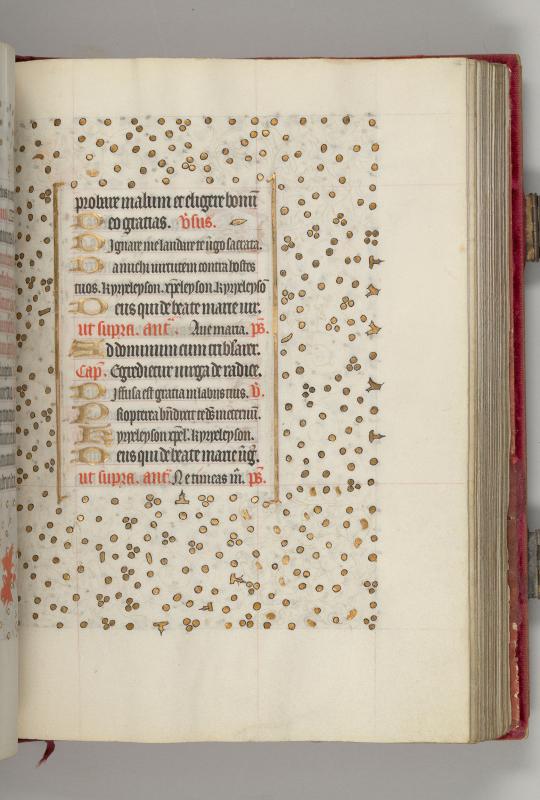 probare malum et eligere bonū
Deo gratias. v̄sus.
Dignare me laudare te v̄go sacrata.
Da michi uirtutem contra hostes
tuos. kyryeleyson. xp̄eleyson. kyryeleysō
Deus qui de beate marie uir.
ut supra. ant̄. Aue maria. ps̄.
Ad dominum cum tribl̄arer.
Cap̄. Egredietur uirga de radice.
Diffusa est gratia in labiis tuis. v̄.
Propterea bn̄dixit te ds̄ in eternū.
Kyryeleyson xp̄el. kyryeleyson.
Deus qui de beate marie v̄g.
ut supra. ant̄. Ne timeas m̄. ps̄.